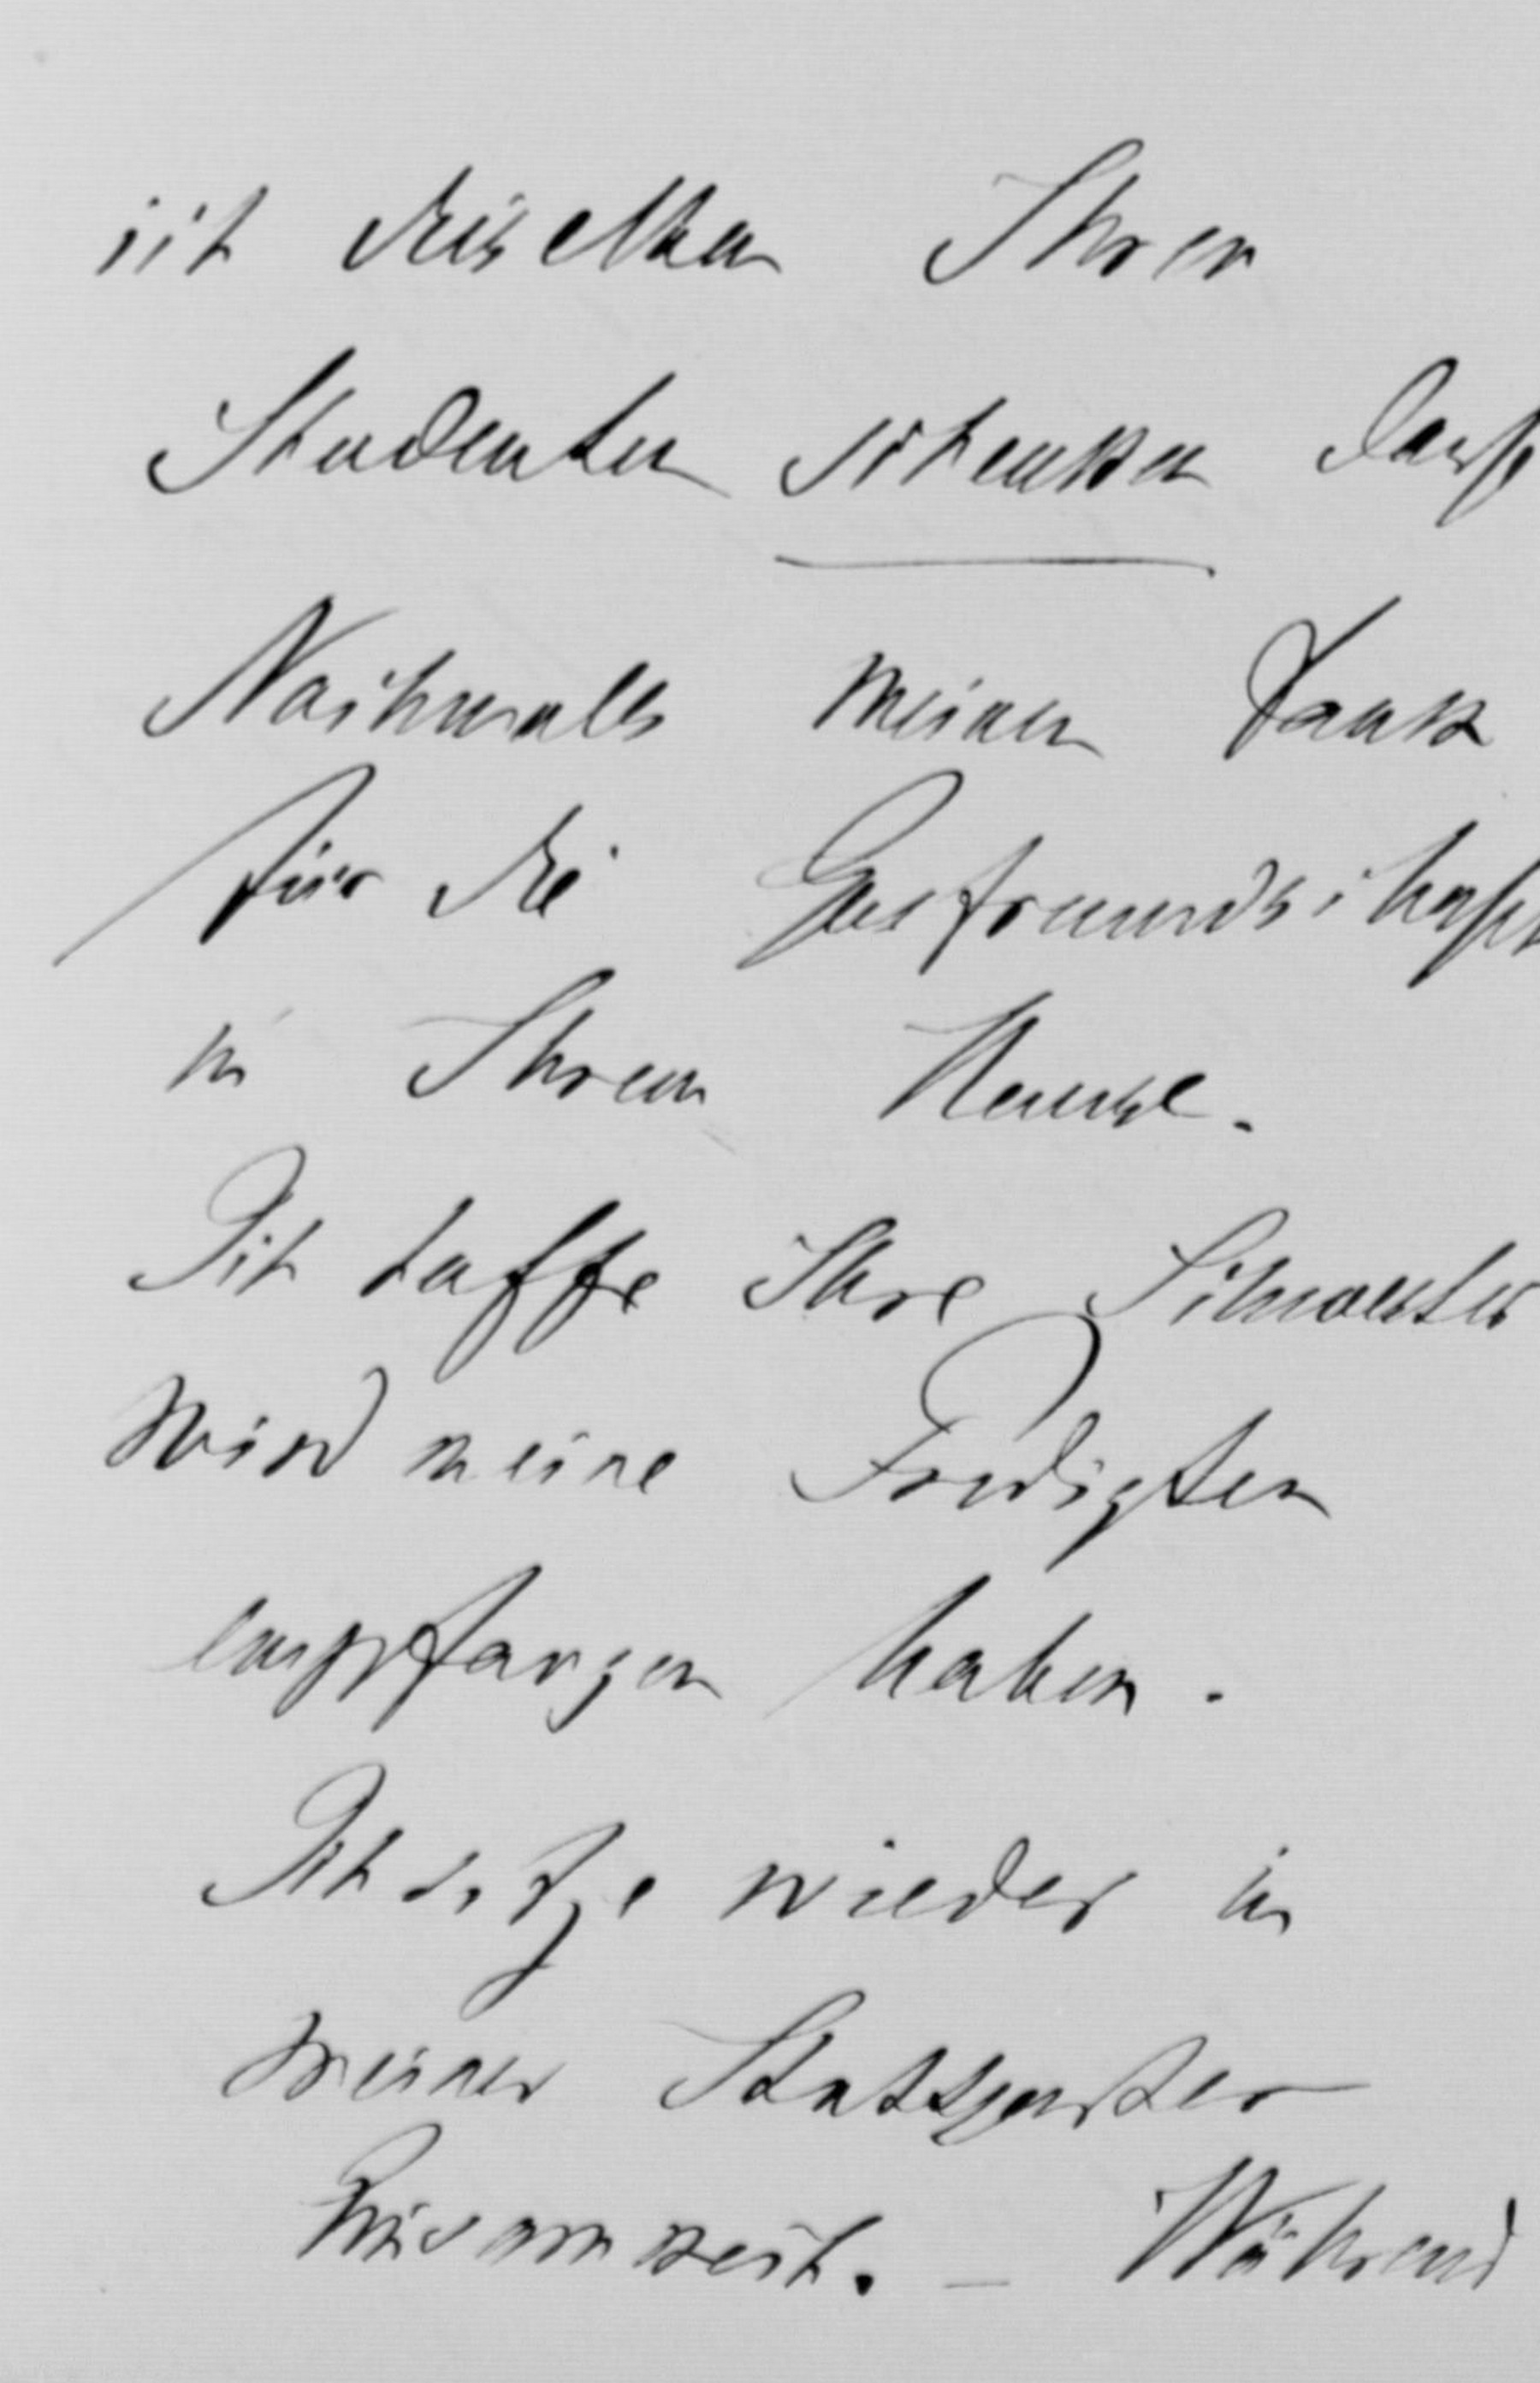 ich dieselben Ihren
Studenten schenken darf
Nochmals meinen Dank
für die Gastfreundschaft
in Ihrem Hause.
Ich hoffe Ihre Schwester
wird meine Predigten
empfangen haben.
Ich sitze wieder in
meiner Stuttgarter
Einsamkeit. – Während